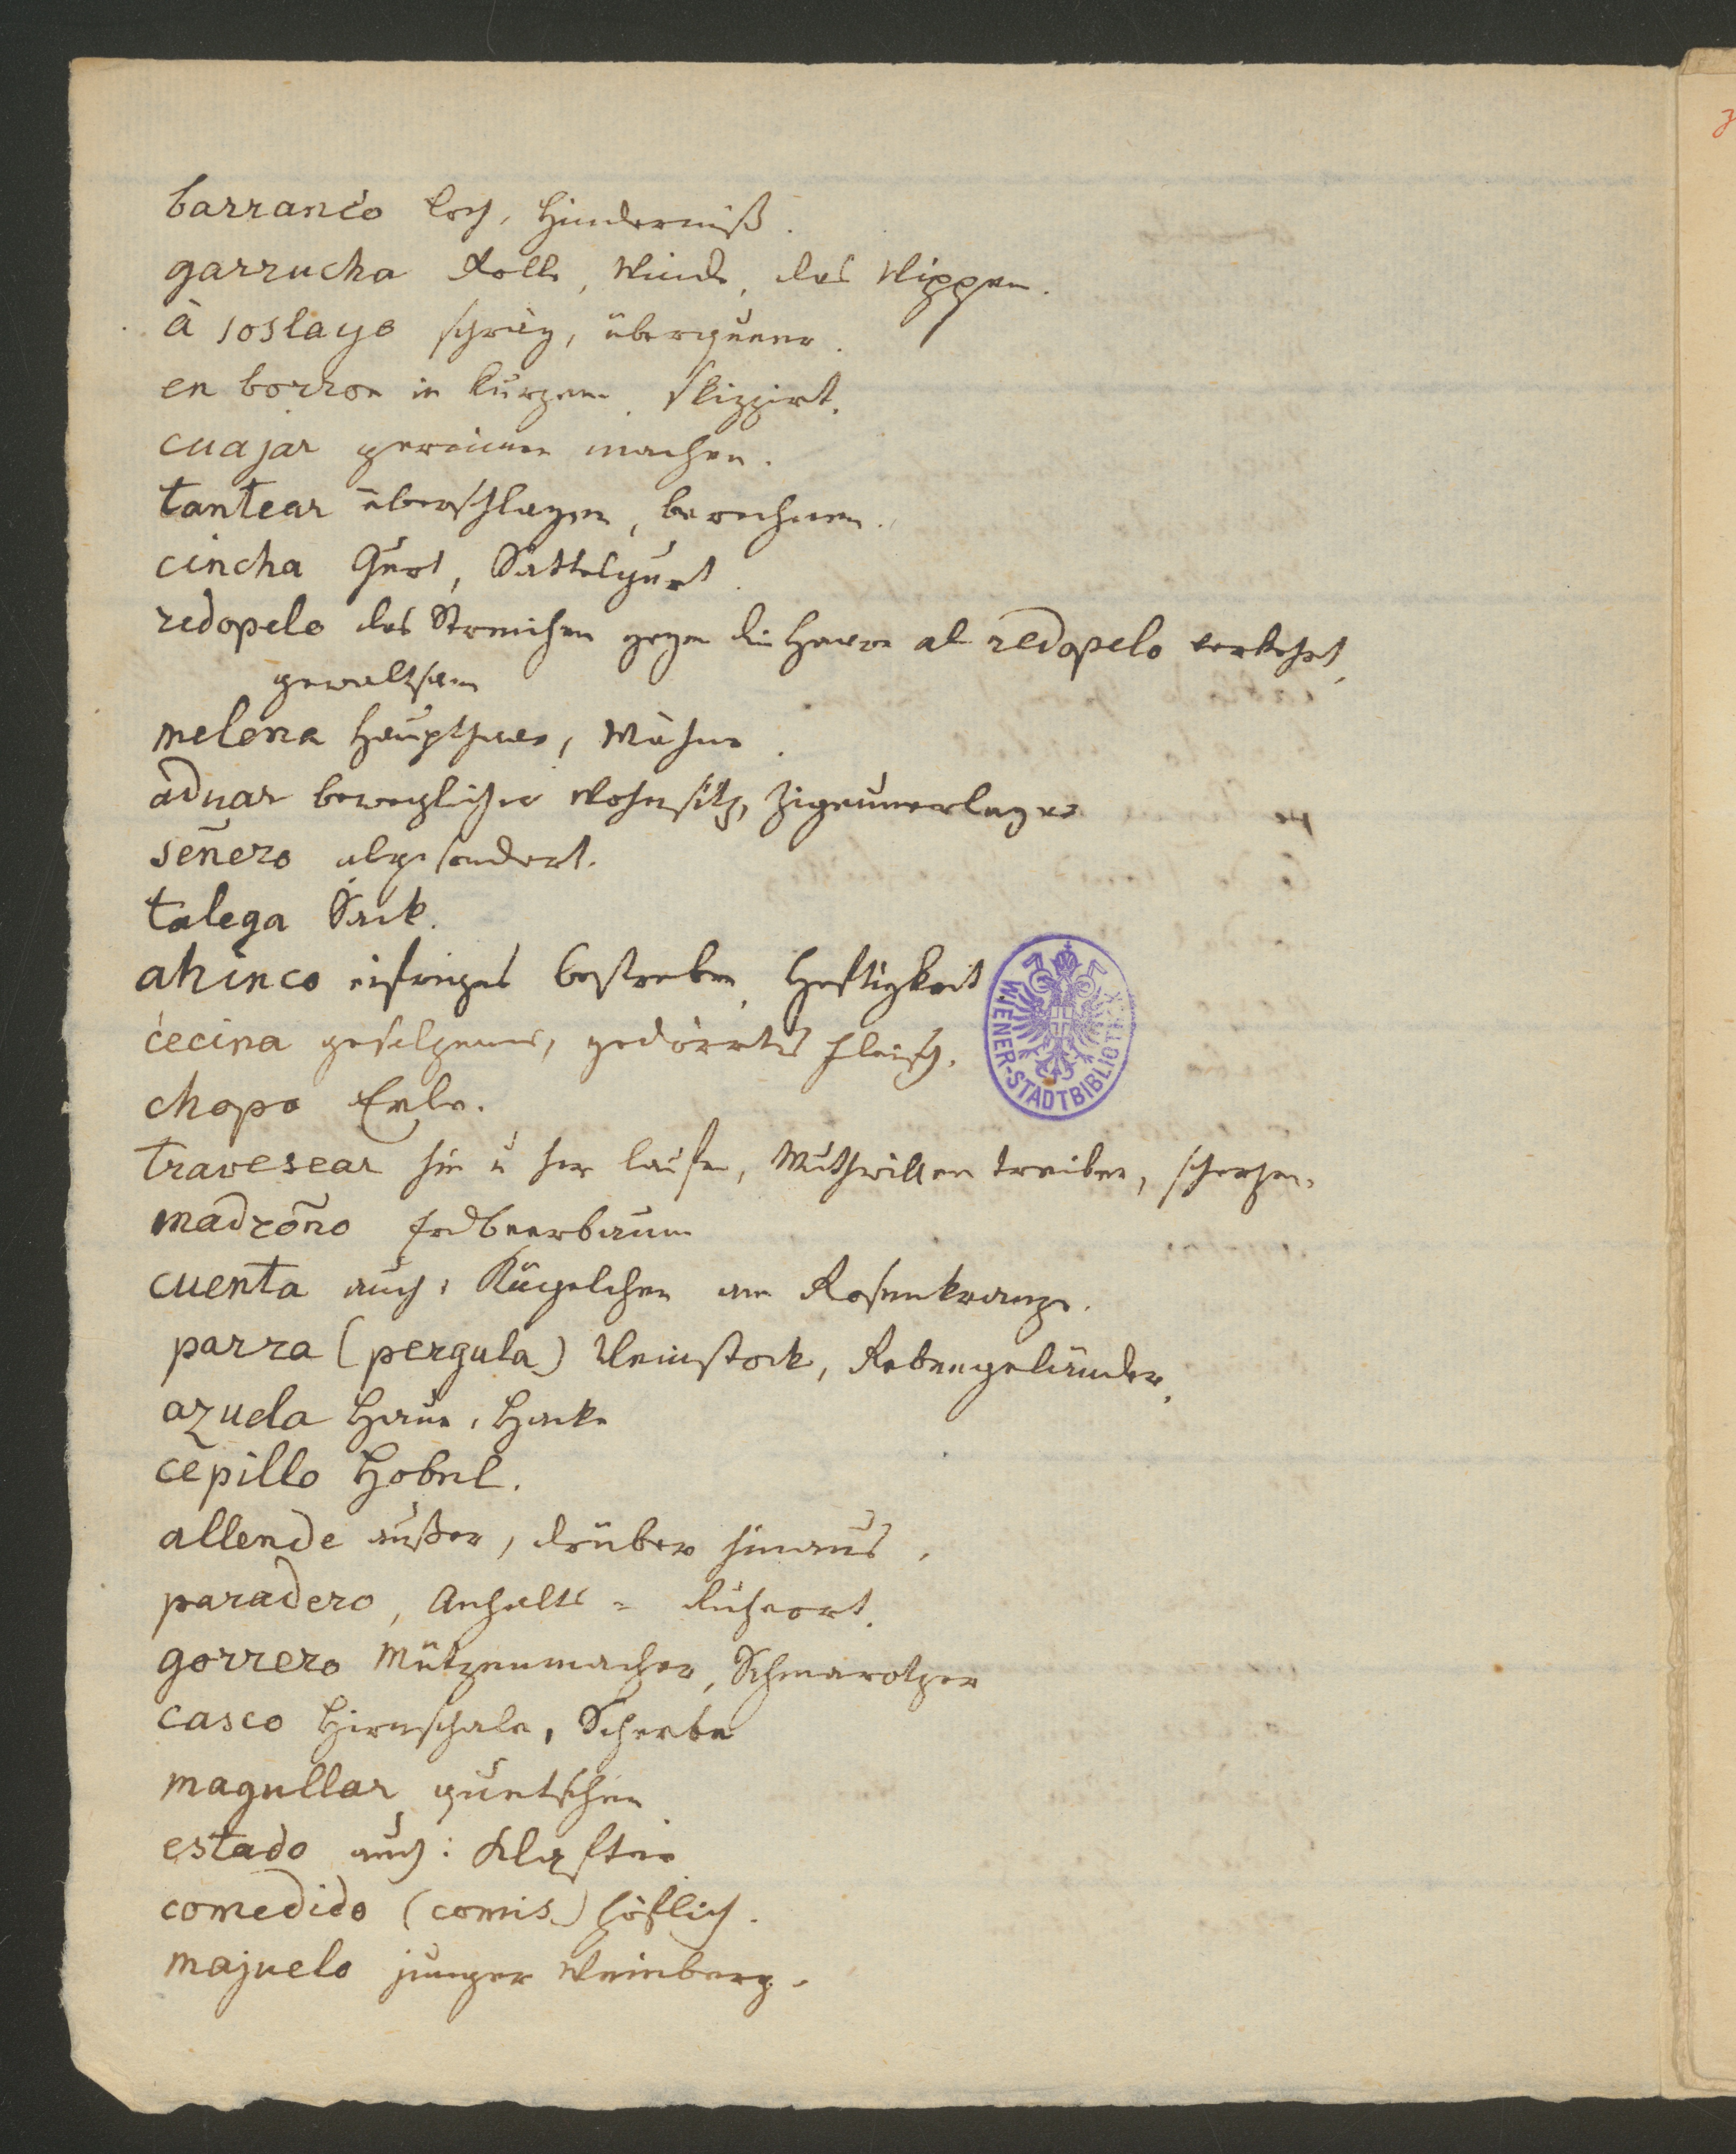 barranco Loch, Hinderniß.
garrucha Rolle, Winde, das Wippen.
à soslayo schräg, überqueer.
en borron in Kurzem, skizzirt.
cuajar gerinnen machen.
tantear überschlagen, berechnen.
cincha Gurt, Sattelgurt.
redopelo das Streichen gegen die Haare al redopelo verkehrt,
gewaltsam
melena Haupthaar, Mähne.
aduar beweglicher Wohnsitz, Zigeunerlager
señero abgesondert.
talega Sack.
ahinco eifriges Bestreben, Heftigkeit
cecina gesalzenes, gedörrtes Fleisch.
chopo Erle.
travesear hin u her laufen, Muthwillen treiben, scherzen.
madroño Erdbeerbaum
cuenta auch: Kügelchen am Rosenkranze.
parra (pergula) Weinstock, Rebengeländer.
azuela Haue, Hacke
cepillo Hobel.
allende außer, drüber hinaus.
paradero, Anhalts- Ruheort.
gorrero Mützenmacher, Schmarotzer
casco Hirnschale, Scherbe
magullar quetschen
estado auch: Klafter
comedido (comis) höflich.
majuelo junger Weinberg.
WIENER-STADTBIBLIOTHEK